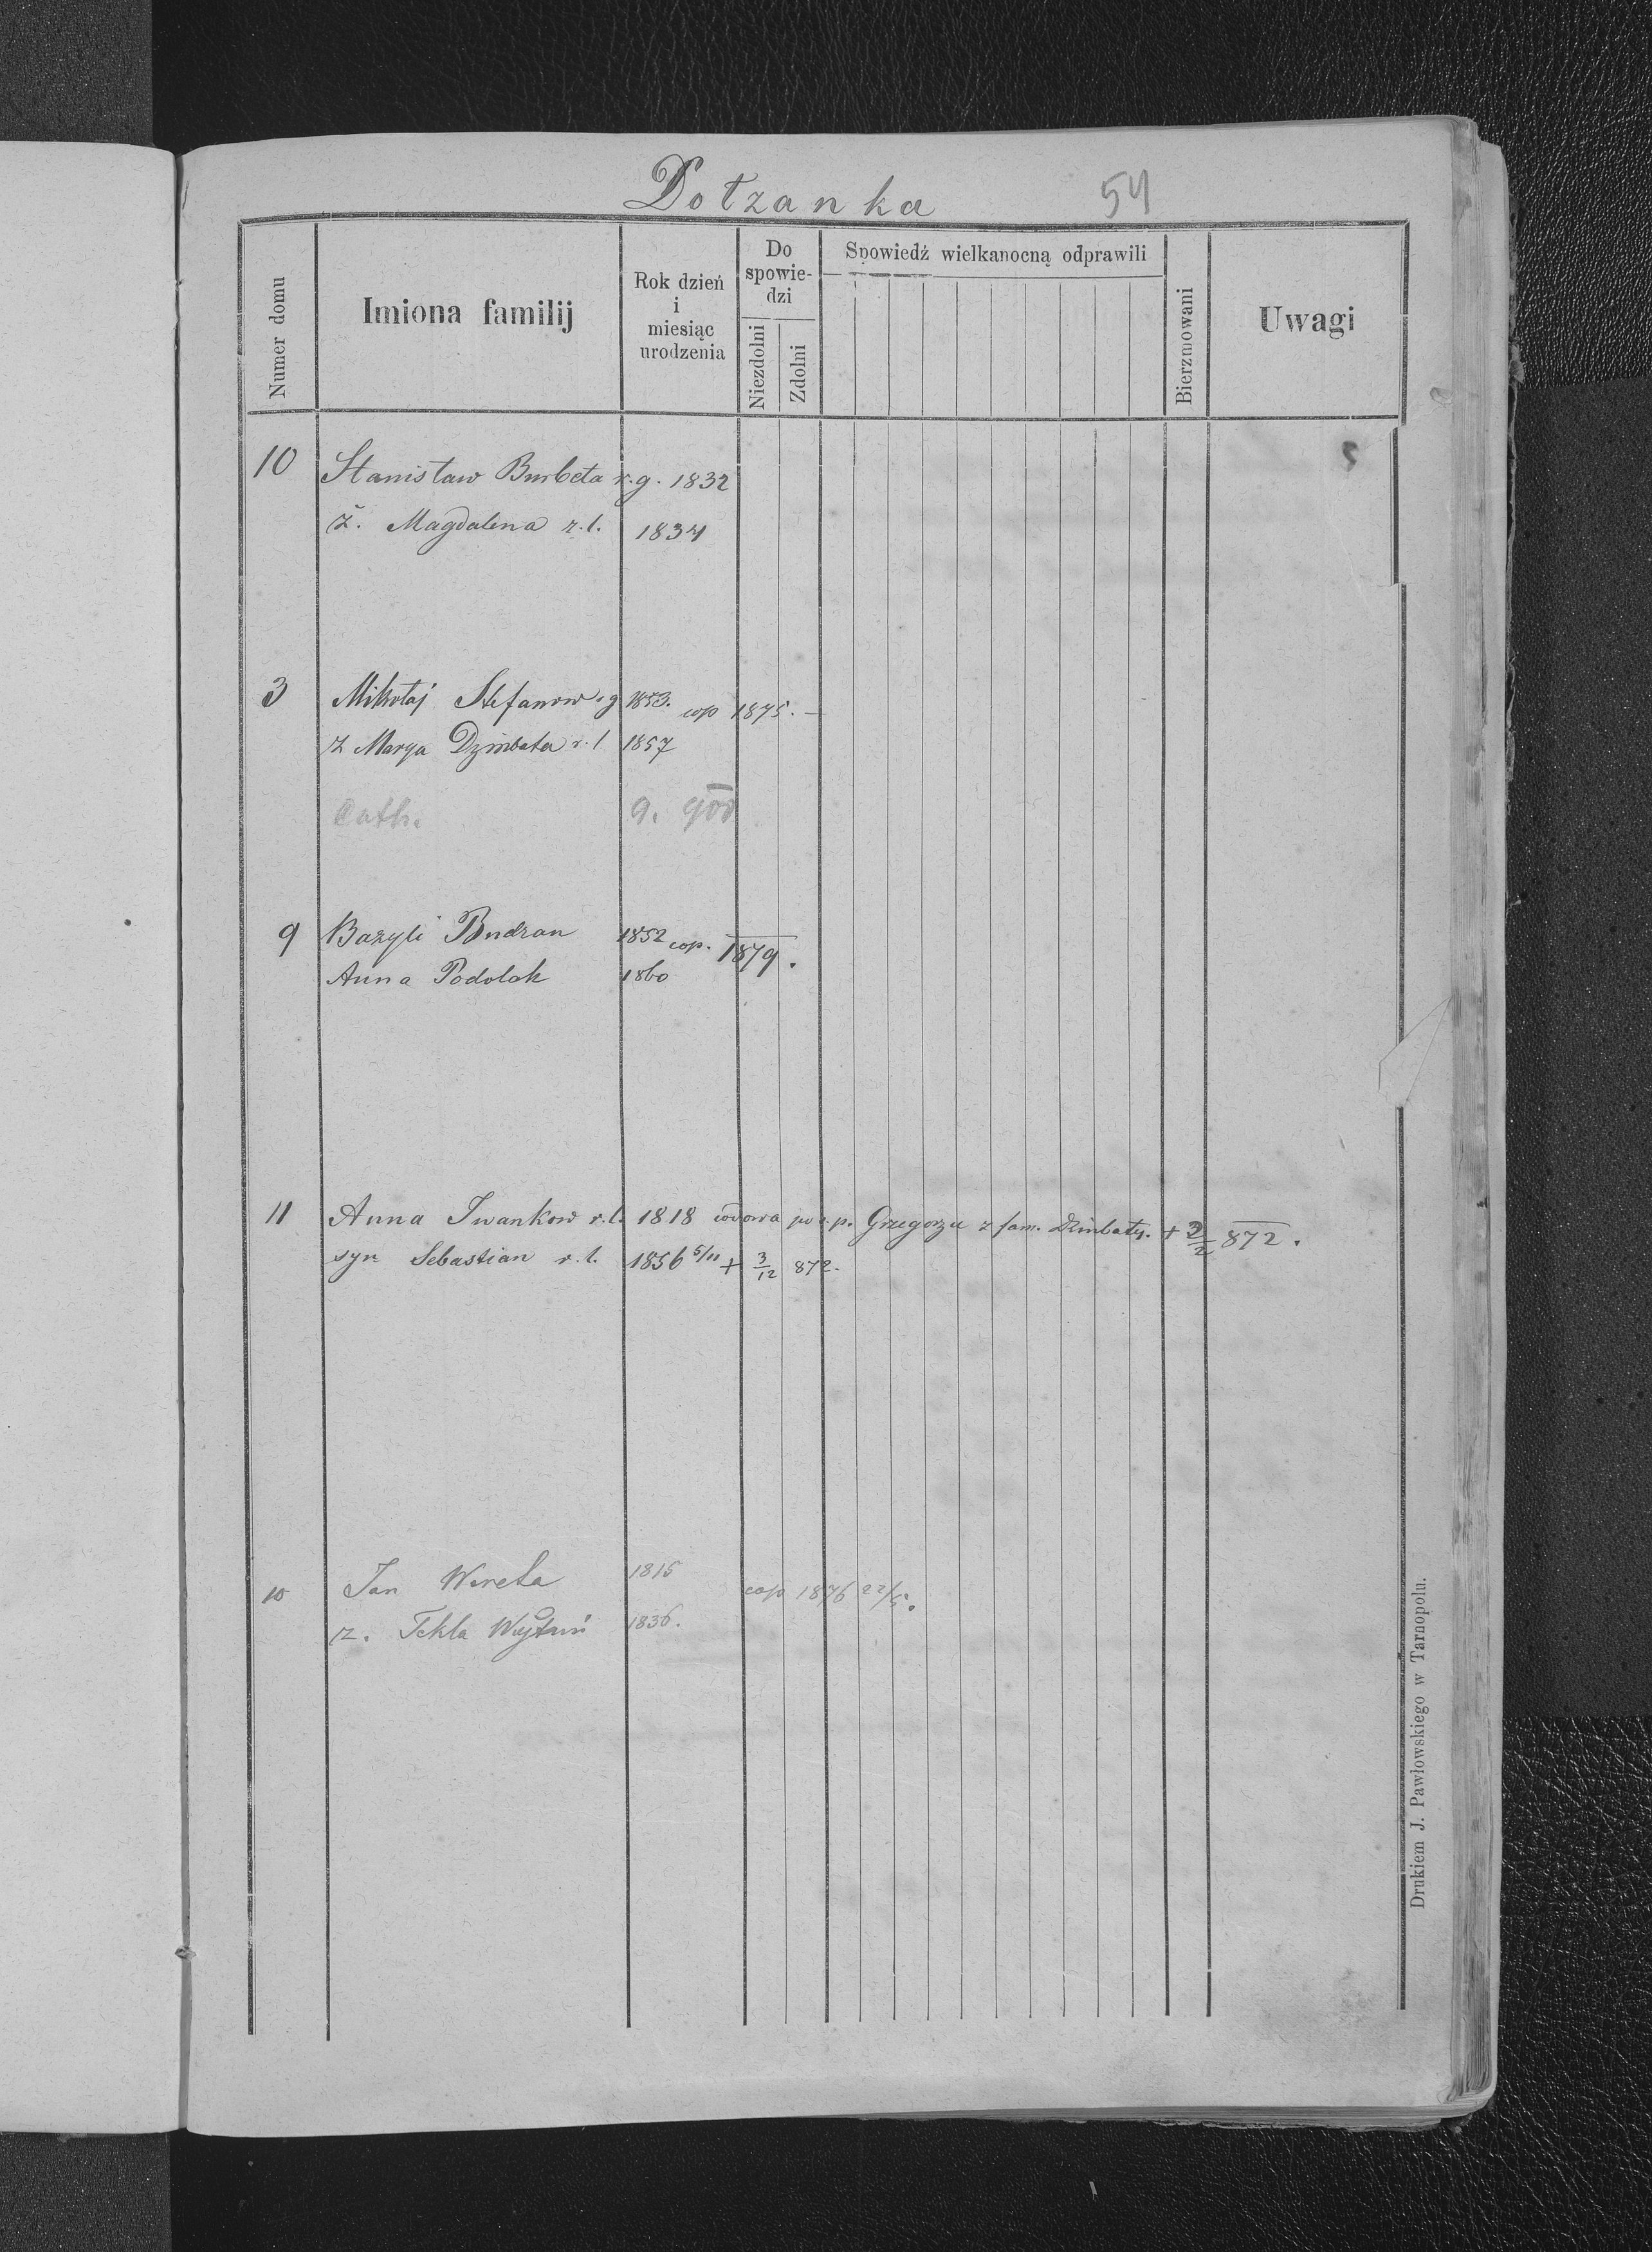 Dołzanka 54
Numer domu
Imiona familij
Rok dzień i miesiąc urodzenia
Do spowiedzi
Niezdolni
Zdolni
Spowiedź wielkanocną odprawili
Bierzmowani
Uwagi
5
10 Stanisław Burbeta r.g. 1832
ż. Magdalena r.l. 1834
3 Mikołaj Stefanow r.g 1853. cop 1875. —
ż Marya Dzimbata r.l 1857
Cath. 9.
9 Bazyli Budzan 1852 cop. 1879.
Anna Podolak 1860
11 Anna Iwankow r.l. 1818 wdowa po ś.p. Grzegorzu z fam. Dzimbaty. + 2/2 872.
syn Sebastian r.l. 1856 5/11 + 3/12 872.
10 Jan Wereta 1815 cop 1876 22/5.
ż. Tekla 1836.
Drukiem J. Pawłowskiego w Tarnopolu.